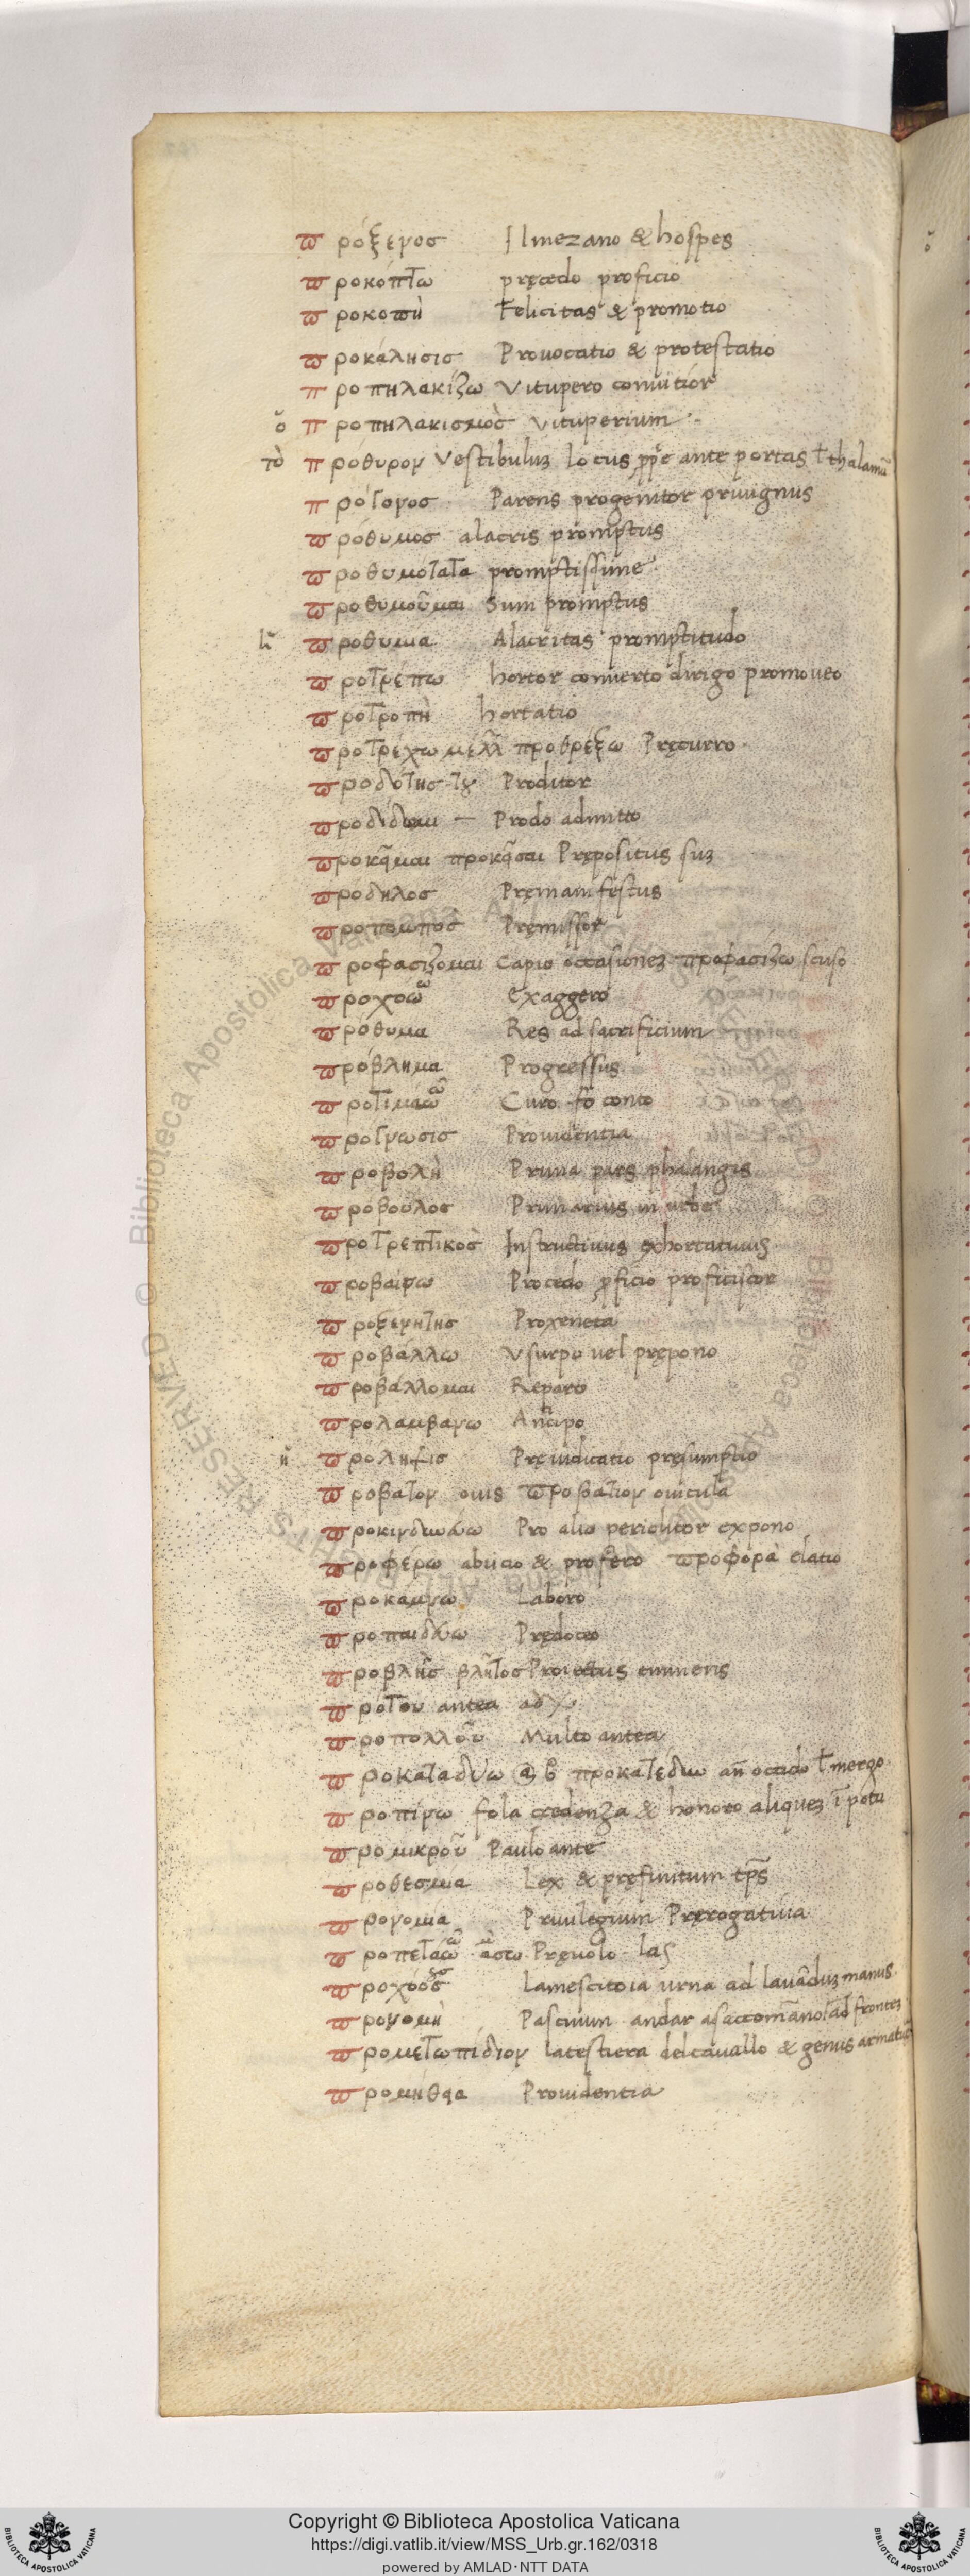 πρόξενος Il mezano & hospes
προκόπτω pręcedo proficio
προκοπὴ Felicitas & promotio
προκάλησις Prouocatio & protestatio
προπηλακίζω Vitupero conuitior
ὁ προπηλακισμὸς vituperium
τὸ πρόθυρον Vestibuluʒ locus ꝓpe ante portas ł thalamū
πρόγονος Parens progenitor priuignus
πρόθυμος alacris promptus
προθυμότατα promptissime
προθυμοῦμαι Sum promptus
ἡ προθυμια Alacritas promptitudo
προτρέπω hortor conuerto dirigo promoueo
προτροπὴ hortatio
προτρέχω μέλλ προθρέξω Pręcurro
προδότης του Proditor
προδίδωμι — Prodo admitto
προκειμαι προκεισαι Prępositus suʒ
πρόδηλος Pręmanifestus
προπομπὸς Pręmissor
προφασιζομαι Capio occasioneʒ προφασιζω scuso
προχοω ῶ Exaggero
πρόθυμα Res ad sacrificium
πρόβλημα Progressus
προτιμάω ῶ Curo fo conto
προγνωσις Prouidentia
προβολὴ Prima pars phalangis
πρόβουλος Primarius in urbe
προτρεπτικὸς Instructiuus exhortatiuus
προβαίνω Procedo ꝓficio proficiscor
προξενητης Proxeneta
προβάλλω Vsurpo uel prępono
προβάλλομαι Reparo
προλαμβανω Anticipo
ἡ προληψις Pręiudicatio pręsumptio
προβατον ouis προβατιον ouicula
προκινδυνεύω Pro alio periclitor expono
προφέρω abiicio & profero προφορὰ elatio
προκαμνω Laboro
προπαιδεύω Prędoceo
προβλὴς βλῆτος Proiectus eminens
πρότου antea
προπολλοῦ Multo antea
προκαταδύω προκατέδυω occido ł mergo
προπίνω fo la credenza & honoro aliqueʒ ī potu
προμικροῦ Paulo ante
προθεσμια Lex & pręfinitum tp̄s
προνομια Priuilegium Pręrogatiuia
προπεταω ῶ άσω Pręuolo las
προχοος Lamescitoia urna ad lauāduʒ manus
προνομὴ Pascuum andar a saccomāno ad fronteʒ
προμετωπίδιον la testiera del cauallo & genus armatur
προμήθεια Prouidentia
Copyright © Biblioteca Apostolica Vaticana
https://digi.vatlib.it/view/MSS_Urb.gr.162/0318
powered by AMLAD·NTT DATA